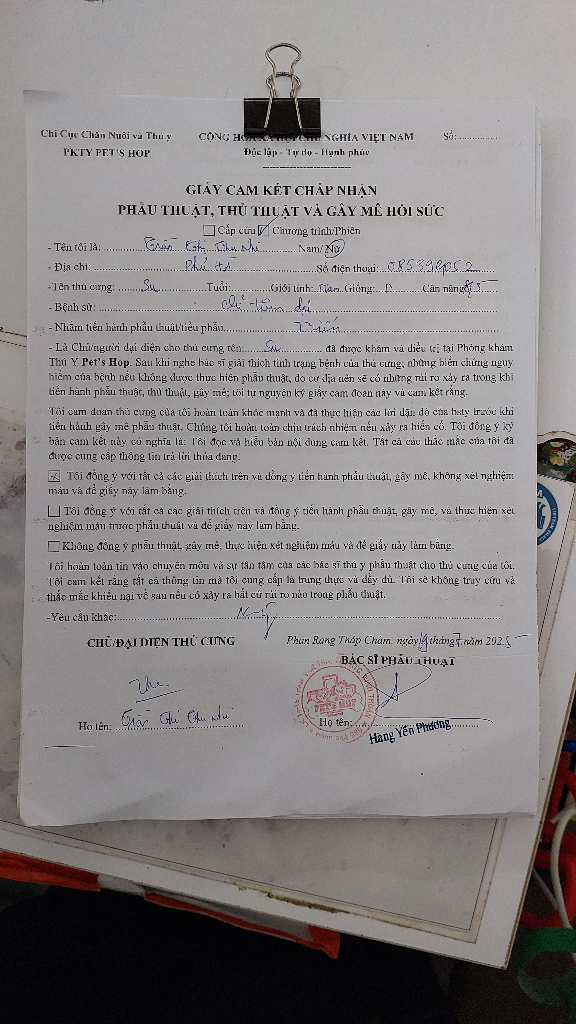 Chi Cục Chăn Nuôi và Thú y CỘNG HÒA XÃ HỘI CHỦ NGHĨA VIỆT NAM Số:
PKTY PET'S HOP Độc lập - Tự do - Hạnh phúc
GIẤY CAM KẾT CHẤP NHẬN
PHẪU THUẬT, THỦ THUẬT VÀ GÂY MÊ HỒI SỨC
Cấp cứu Chương trình/Phiên
- Tên tôi là: Trần Thị Thu Nhi Nam/Nữ
- Địa chỉ: Phú Hà Số điện thoại:
-Tên thú cưng: Su Tuổi: Giới tính: Giống: Cân nặng:
- Bệnh sử:
- Nhằm tiến hành phẫu thuật/tiểu phẫu Triến
- Là Chủ/người đại diện cho thú cưng tên: Su đã được khám và điều trị tại Phòng khám
Thú Y Pet's Hop. Sau khi nghe bác sĩ giải thích tình trạng bệnh của thú cưng; những biến chứng nguy
hiểm của bệnh nếu không được thực hiện phẫu thuật, do cơ địa nên sẽ có những rủi ro xảy ra trong khi
tiến hành phẫu thuật, thủ thuật, gây mê; tôi tự nguyện ký giấy cam đoan này và cam kết rằng.
Tôi cam đoan thú cưng của tôi hoàn toàn khỏe mạnh và đã thực hiện các lời dặn dò của bsty trước khi
tiến hành gây mê phẫu thuật. Chúng tôi hoàn toàn chịu trách nhiệm nếu xảy ra biến cố. Tôi đồng ý ký
bản cam kết này có nghĩa là: Tôi đọc và hiểu bản nội dung cam kết. Tất cả các thắc mắc của tôi đã
được cung cấp thông tin trả lời thỏa đáng.
Tôi đồng ý với tất cả các giải thích trên và đồng ý tiến hành phẫu thuật, gây mê, không xét nghiệm
máu và để giấy này làm bằng.
Tôi đồng ý với tất cả các giải thích trên và đồng ý tiến hành phẫu thuật, gây mê, và thực hiện xét
nghiệm máu trước phẫu thuật và để giấy này làm bằng.
Không đồng ý phẫu thuật, gây mê, thực hiện xét nghiệm máu và để giấy này làm bằng.
Tôi hoàn toàn tin vào chuyên môn và sự tận tâm của các bác sĩ thú y phẫu thuật cho thú cưng của tôi.
Tôi cam kết rằng tất cả thông tin mà tôi cung cấp là trung thực và đầy đủ. Tôi sẽ không truy cứu và
thắc mắc khiếu nại về sau nếu có xảy ra bất cứ rủi ro nào trong phẫu thuật.
-Yêu cầu khác:
CHỦ/ĐẠI DIỆN THÚ CƯNG Phan Rang Tháp Chàm, ngày tháng 7 năm 2025
BÁC SĨ PHẪU THUẬT
PETS HOP
Họ tên: Trần Thị Thu Nhi Họ tên:
Hàng Yến Phương